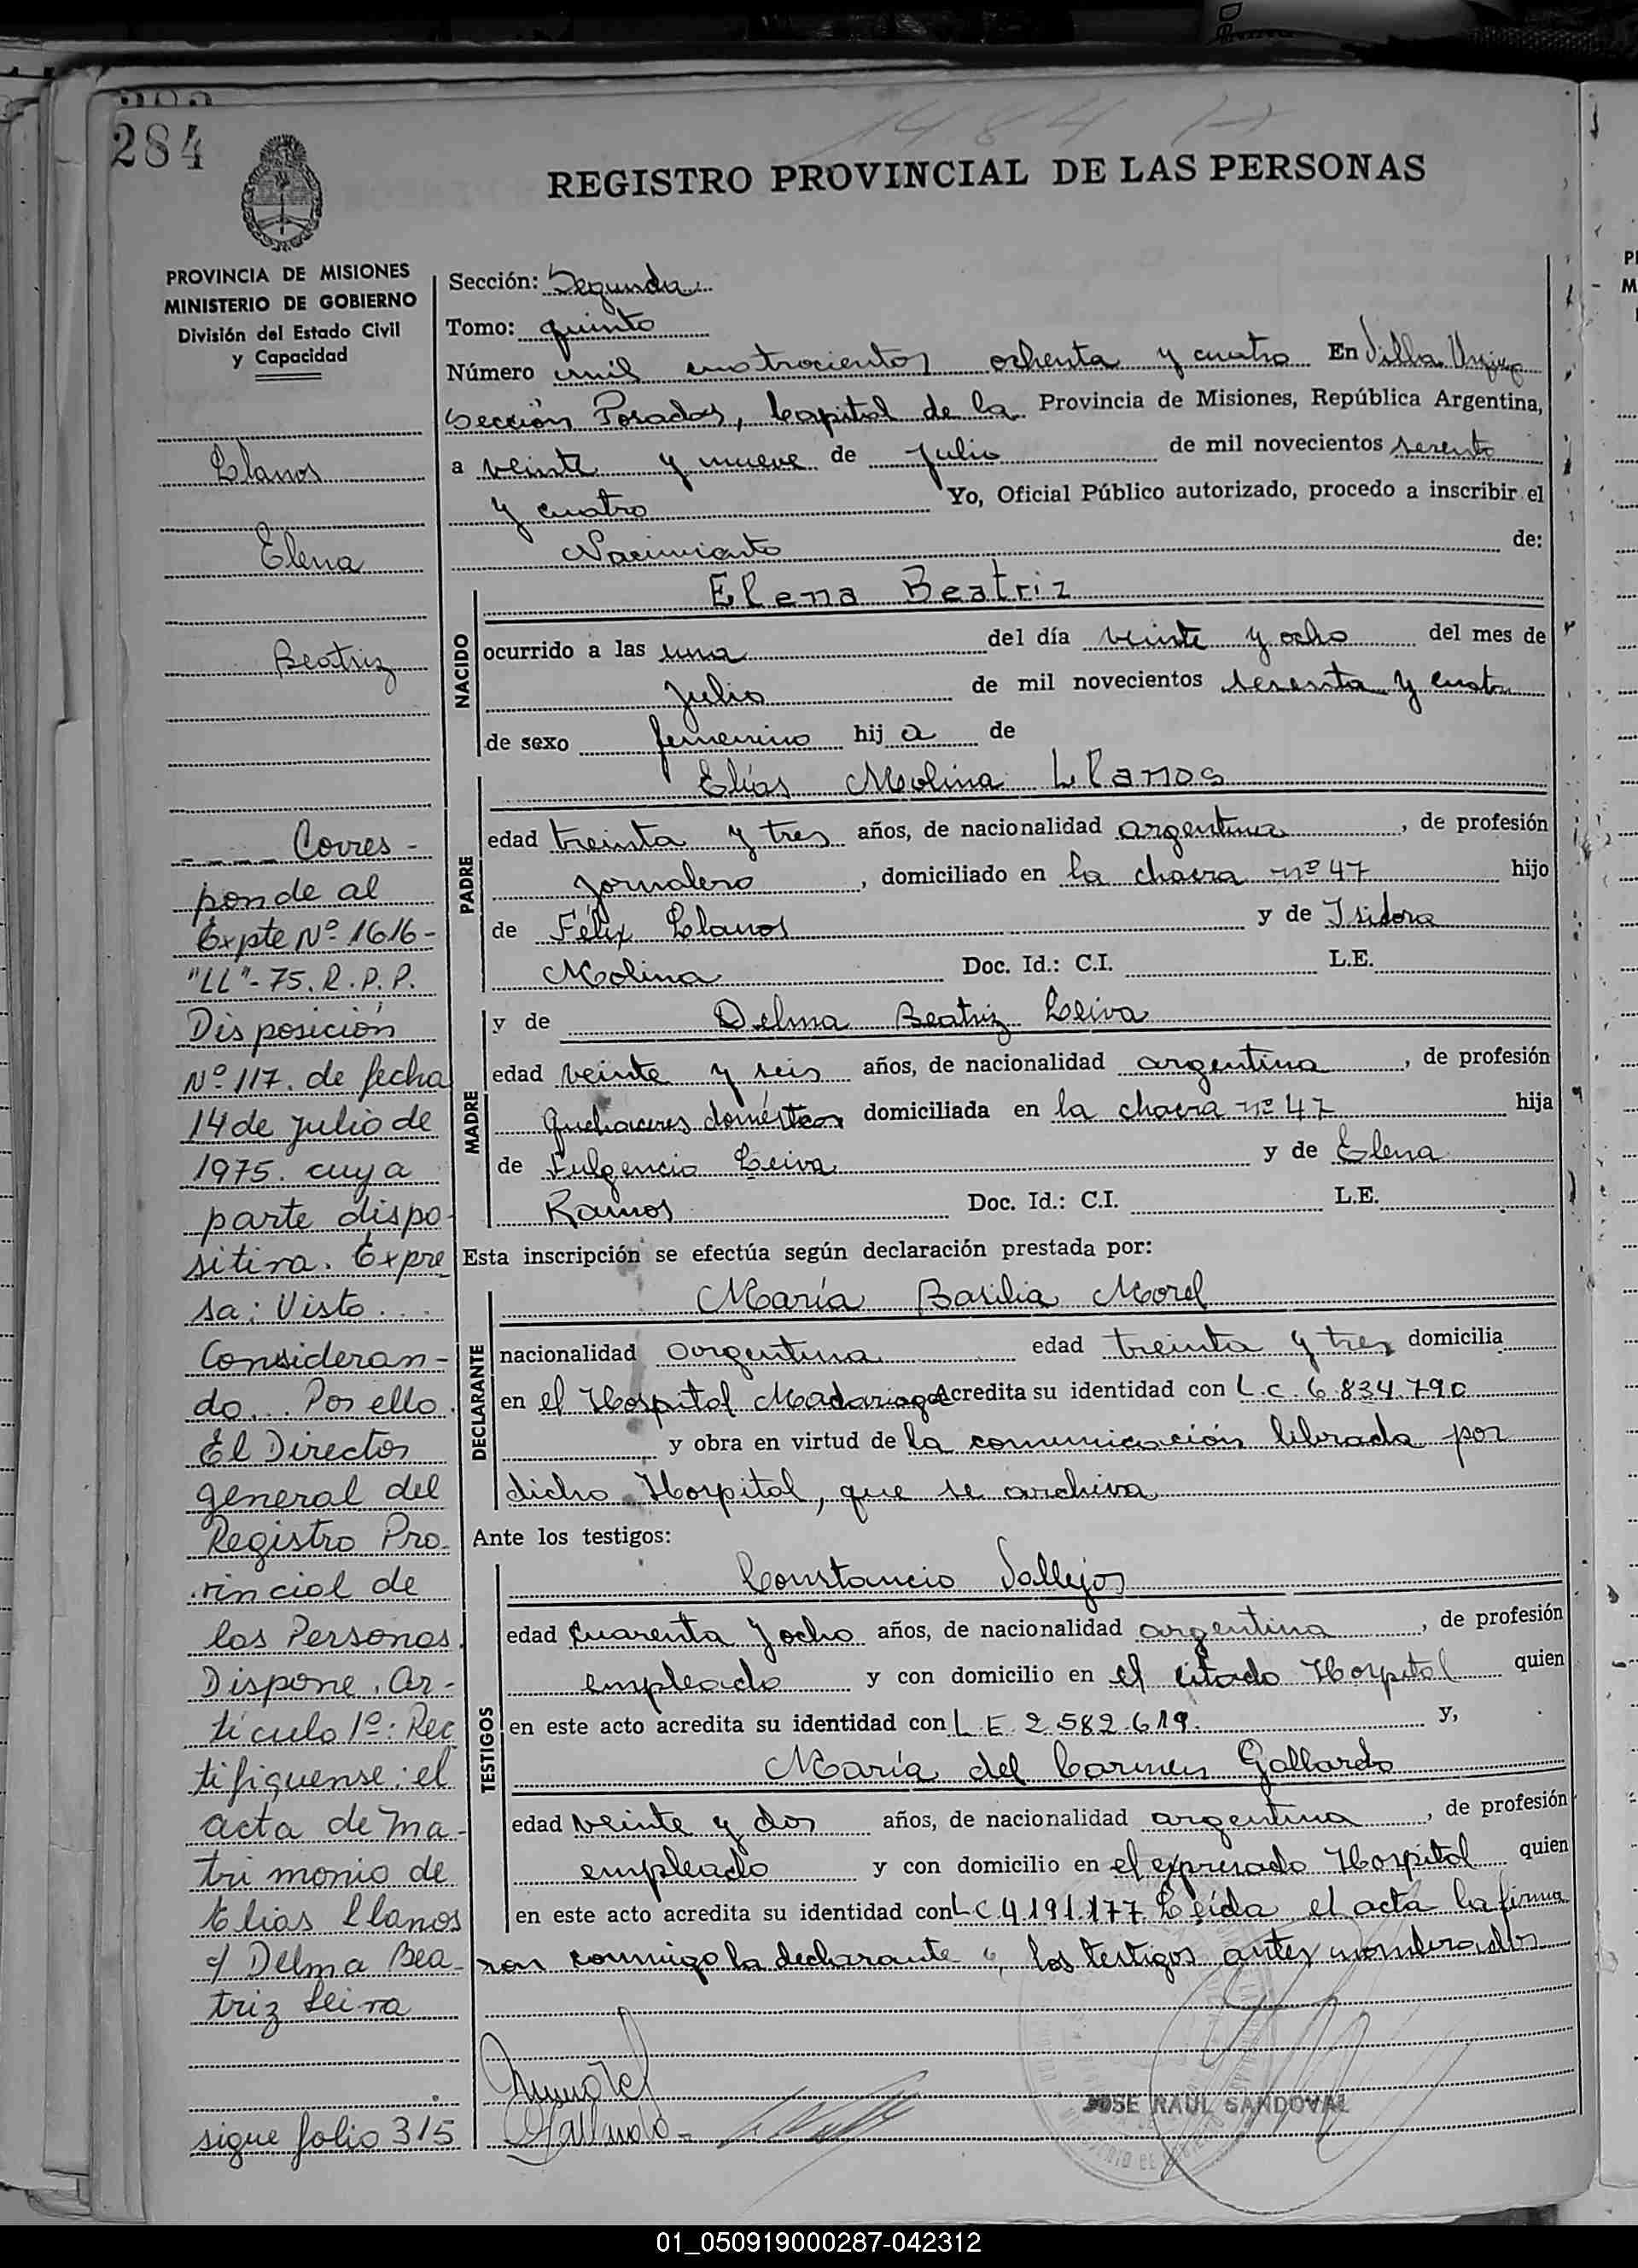 284
1484
REGISTRO PROVINCIAL DE LAS PERSONAS
PROVINCIA DE MISIONES
MINISTERIO DE GOBIERNO
División del Estado Civil
y Capacidad
Llanos
Elena
Beatriz
---- Corres-
ponde al
Expte Nº 1616-
"LL"-75. R.P.P.
Disposición
Nº 117. de fecha
14 de julio de
1975. cuya
parte dispo-
sitiva. Expre
sa: Visto....
Consideran-
do... Por ello.
El Director
general del
Registro Pro-
vincial de
las Personas.
Dispone. Ar-
tículo 1º: Rec
tifiquense: el
acta de ma-
trimonio de
Elias Llanos
c/ Delma Bea-
triz Leiva
sigue folio 315
Sección: Segunda
Tomo: quinto
Número mil cuatrocientos ochenta y cuatro En Villa Urquiza
Sección Posadas, Capital de la Provincia de Misiones, República Argentina,
a veinte y nueve de julio de mil novecientos sesenta
y cuatro Yo, Oficial Público autorizado, procedo a inscribir el
Nacimiento de:
NACIDO
Elena Beatriz
ocurrido a las una del día veinte y ocho del mes de
julio de mil novecientos sesenta y cuatro
de sexo femenino hij a de
PADRE
Elías Molina Llanos
edad treinta y tres años, de nacionalidad argentina, de profesión
jornalero, domiciliado en la chacra nº 47 hijo
de Félix Llanos y de Isidora
Molina Doc. Id.: C.I. L.E.
MADRE
y de Delma Beatriz Leiva
edad veinte y seis años, de nacionalidad argentina, de profesión
Quehaceres domésticos domiciliada en la chacra nº 47 hija
de Fulgencio Leiva y de Elena
Ramos Doc. Id.: C.I. L.E.
Esta inscripción se efectúa según declaración prestada por:
DECLARANTE
María Basilia Morel
nacionalidad argentina edad treinta y tres domicilia
en el Hospital Madariaga acredita su identidad con L.C. 6.834.790
y obra en virtud de la comunicación librada por
dicho Hospital, que se archiva
Ante los testigos:
TESTIGOS
Constancio Vallejos
edad cuarenta y ocho años, de nacionalidad argentina, de profesión
empleado y con domicilio en el citado Hospital quien
en este acto acredita su identidad con L.E. 2.582.619. y,
María del Carmen Gallardo
edad veinte y dos años, de nacionalidad argentina, de profesión
empleado y con domicilio en el expresado Hospital quien
en este acto acredita su identidad con L C 4.191.177 Leída el acta la firma
ron conmigo la declarante y los testigos antes nombrados
Gallardo
JOSE RAUL SANDOVAL
01_050919000287-042312